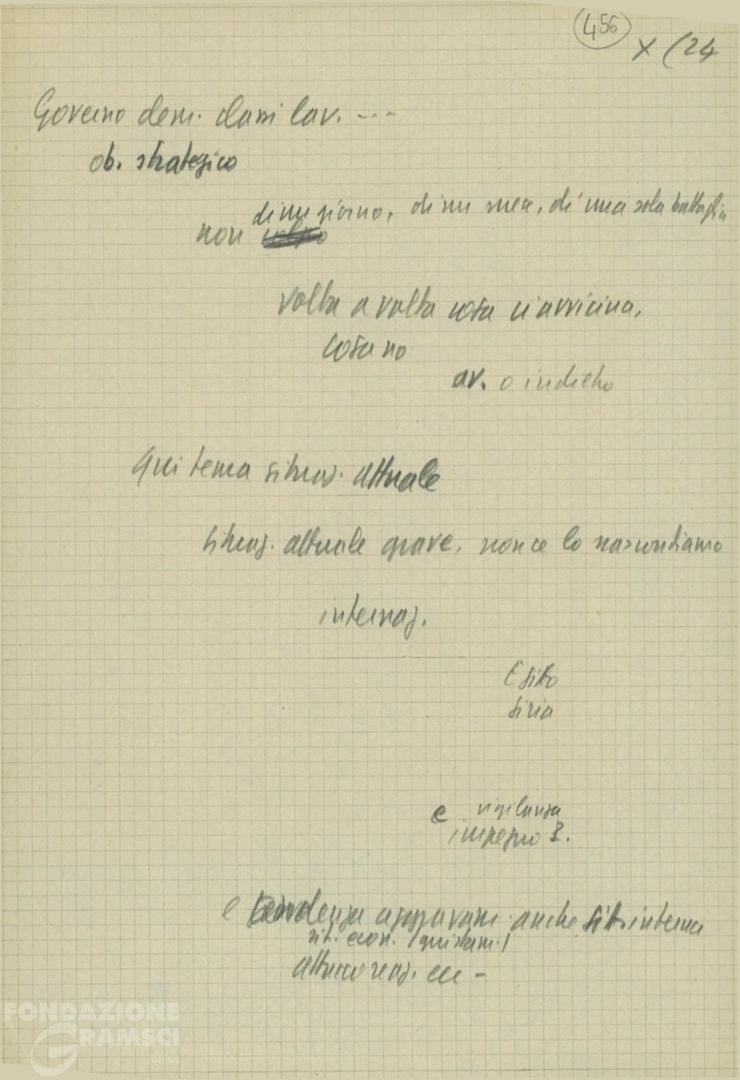 456
x (24
Governo dem. classi lav. ---
ob. strategico
di un giorno, di un mese, di una sola battaglia
non
volta a volta cosa ci avvicina,
cosa no
av. o indietro
Qui tema situaz. attuale
Situaz. attuale grave, non ce lo nascondiamo
internaz.
Egitto
Siria
e vigilanza
impegno I.
e tendenza aggravam. anche sit. interna
sit. econ.
attacco reaz. ecc -
FONDAZIONE
GRAMSCI